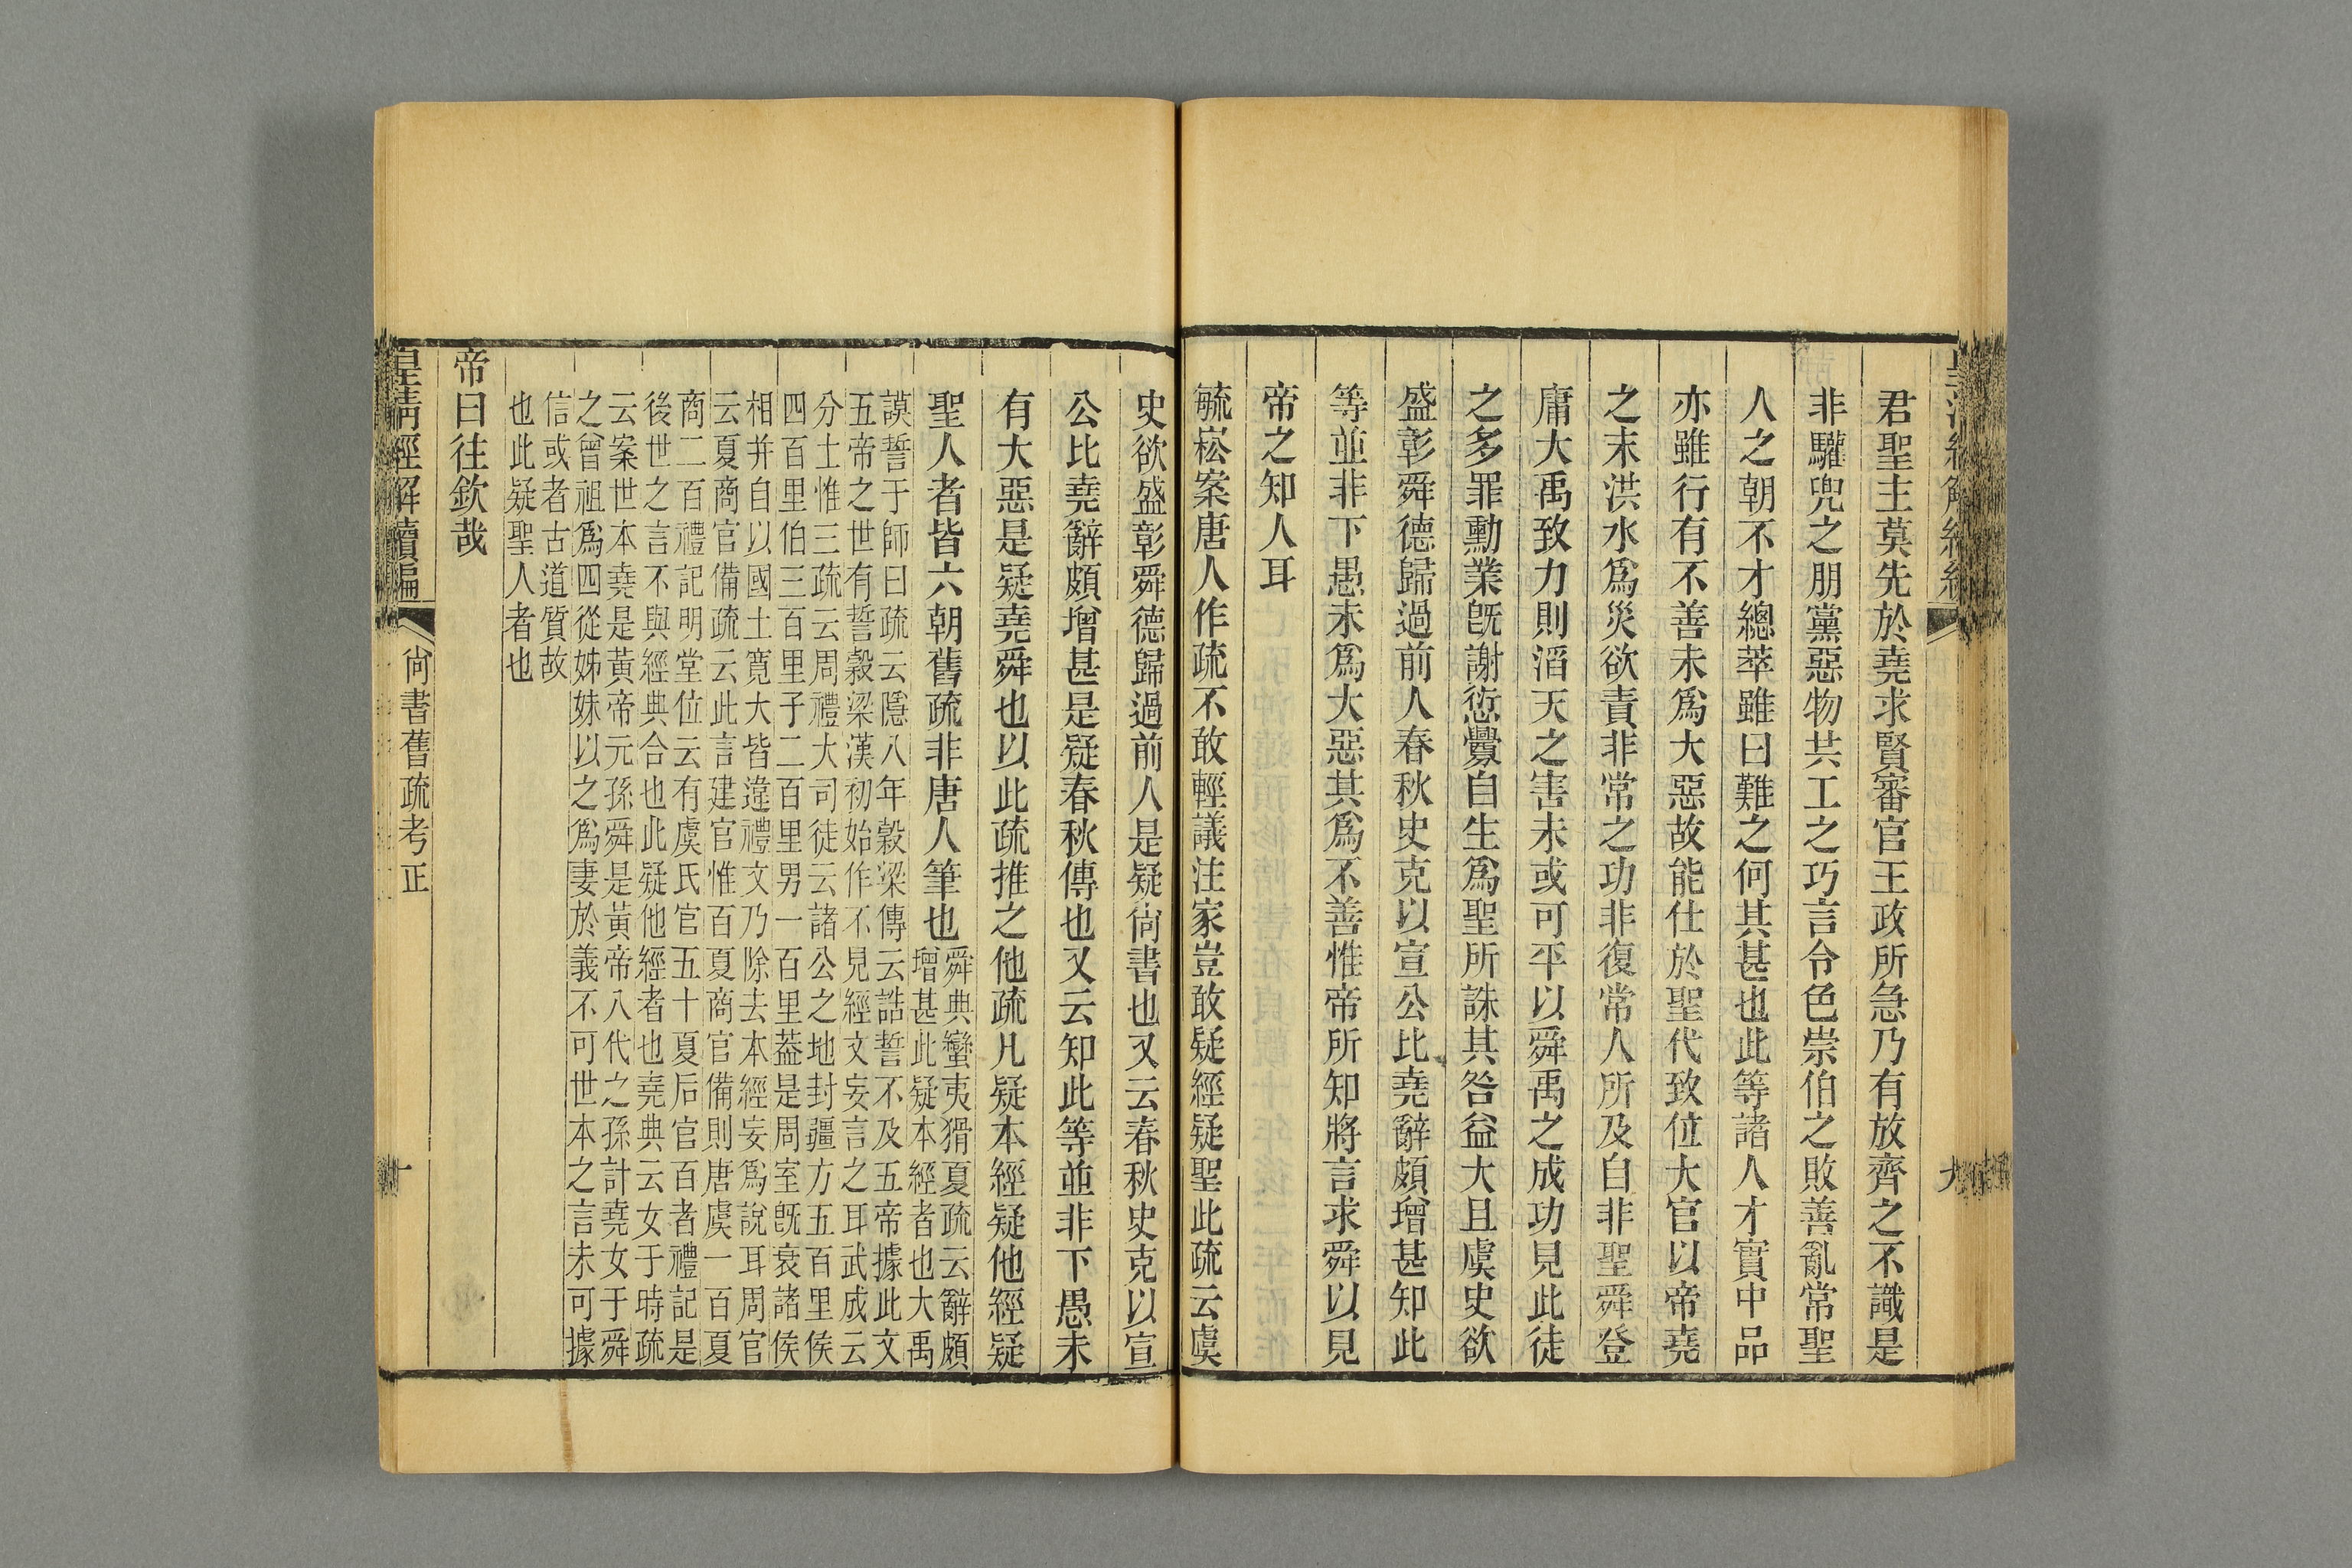 君聖主莫先於堯求賢審官王政所急乃有放齊之不識是
非驩兜之朋黨惡物共工之巧言令色崇伯之敗善亂常聖
人之朝不才總萃雖曰難之何其甚也此等諸人才實中品
亦雖行有不善未爲大惡故能仕於聖代致位大官以帝堯
之末洪水爲災欲責非常之功非復常人所及自非聖舜登
庸大禹致力則滔天之害未或可平以舜禹之成功見此徒
之多罪勳業旣謝愆釁自生爲聖所誅其咎益大且虞史欲
盛彰舜德歸過前人春秋史克以宣公比堯辭頗增甚知此
等並非下愚未爲大惡其爲不善惟帝所知將言求舜以見
帝之知人耳
毓崧案唐人作疏不敢輕議注家豈敢疑經疑聖此疏云虞
史欲盛彰舜德歸過前人是疑尙書也又云春秋史克以宣
公比堯辭頗增甚是疑春秋傳也又云知此等並非下愚未
有大惡是疑堯舜也以此疏推之他疏凡疑本經疑他經疑
聖人者皆六朝舊疏非唐人筆也
舜典蠻夷猾夏疏云辭頗
增甚此疑本經者也大禹
謨誓于師曰疏云隱八年穀梁傳云誥誓不及五帝據此文
五帝之世有誓穀梁漢初始作不見經文妄言之耳武成云
分土惟三疏云周禮大司徒云諸公之地封疆方五百里侯
四百里伯三百里子二百里男一百里葢是周室旣衰諸侯
相并自以國土寬大皆違禮文乃除去本經妄爲說耳周官
云夏商官備疏云此言建官惟百夏商官備則唐虞一百夏
商二百禮記明堂位云有虞氏官五十夏后官百者禮記是
後世之言不與經典合也此疑他經者也堯典云女于時疏
云案世本堯是黃帝元孫舜是黃帝八代之孫計堯女于舜
之曾祖爲四從姊妹以之爲妻於義不可世本之言未可據
信或者古道質故
也此疑聖人者也
帝曰往欽哉
皇清經解續編
尙書舊疏考正
十
九